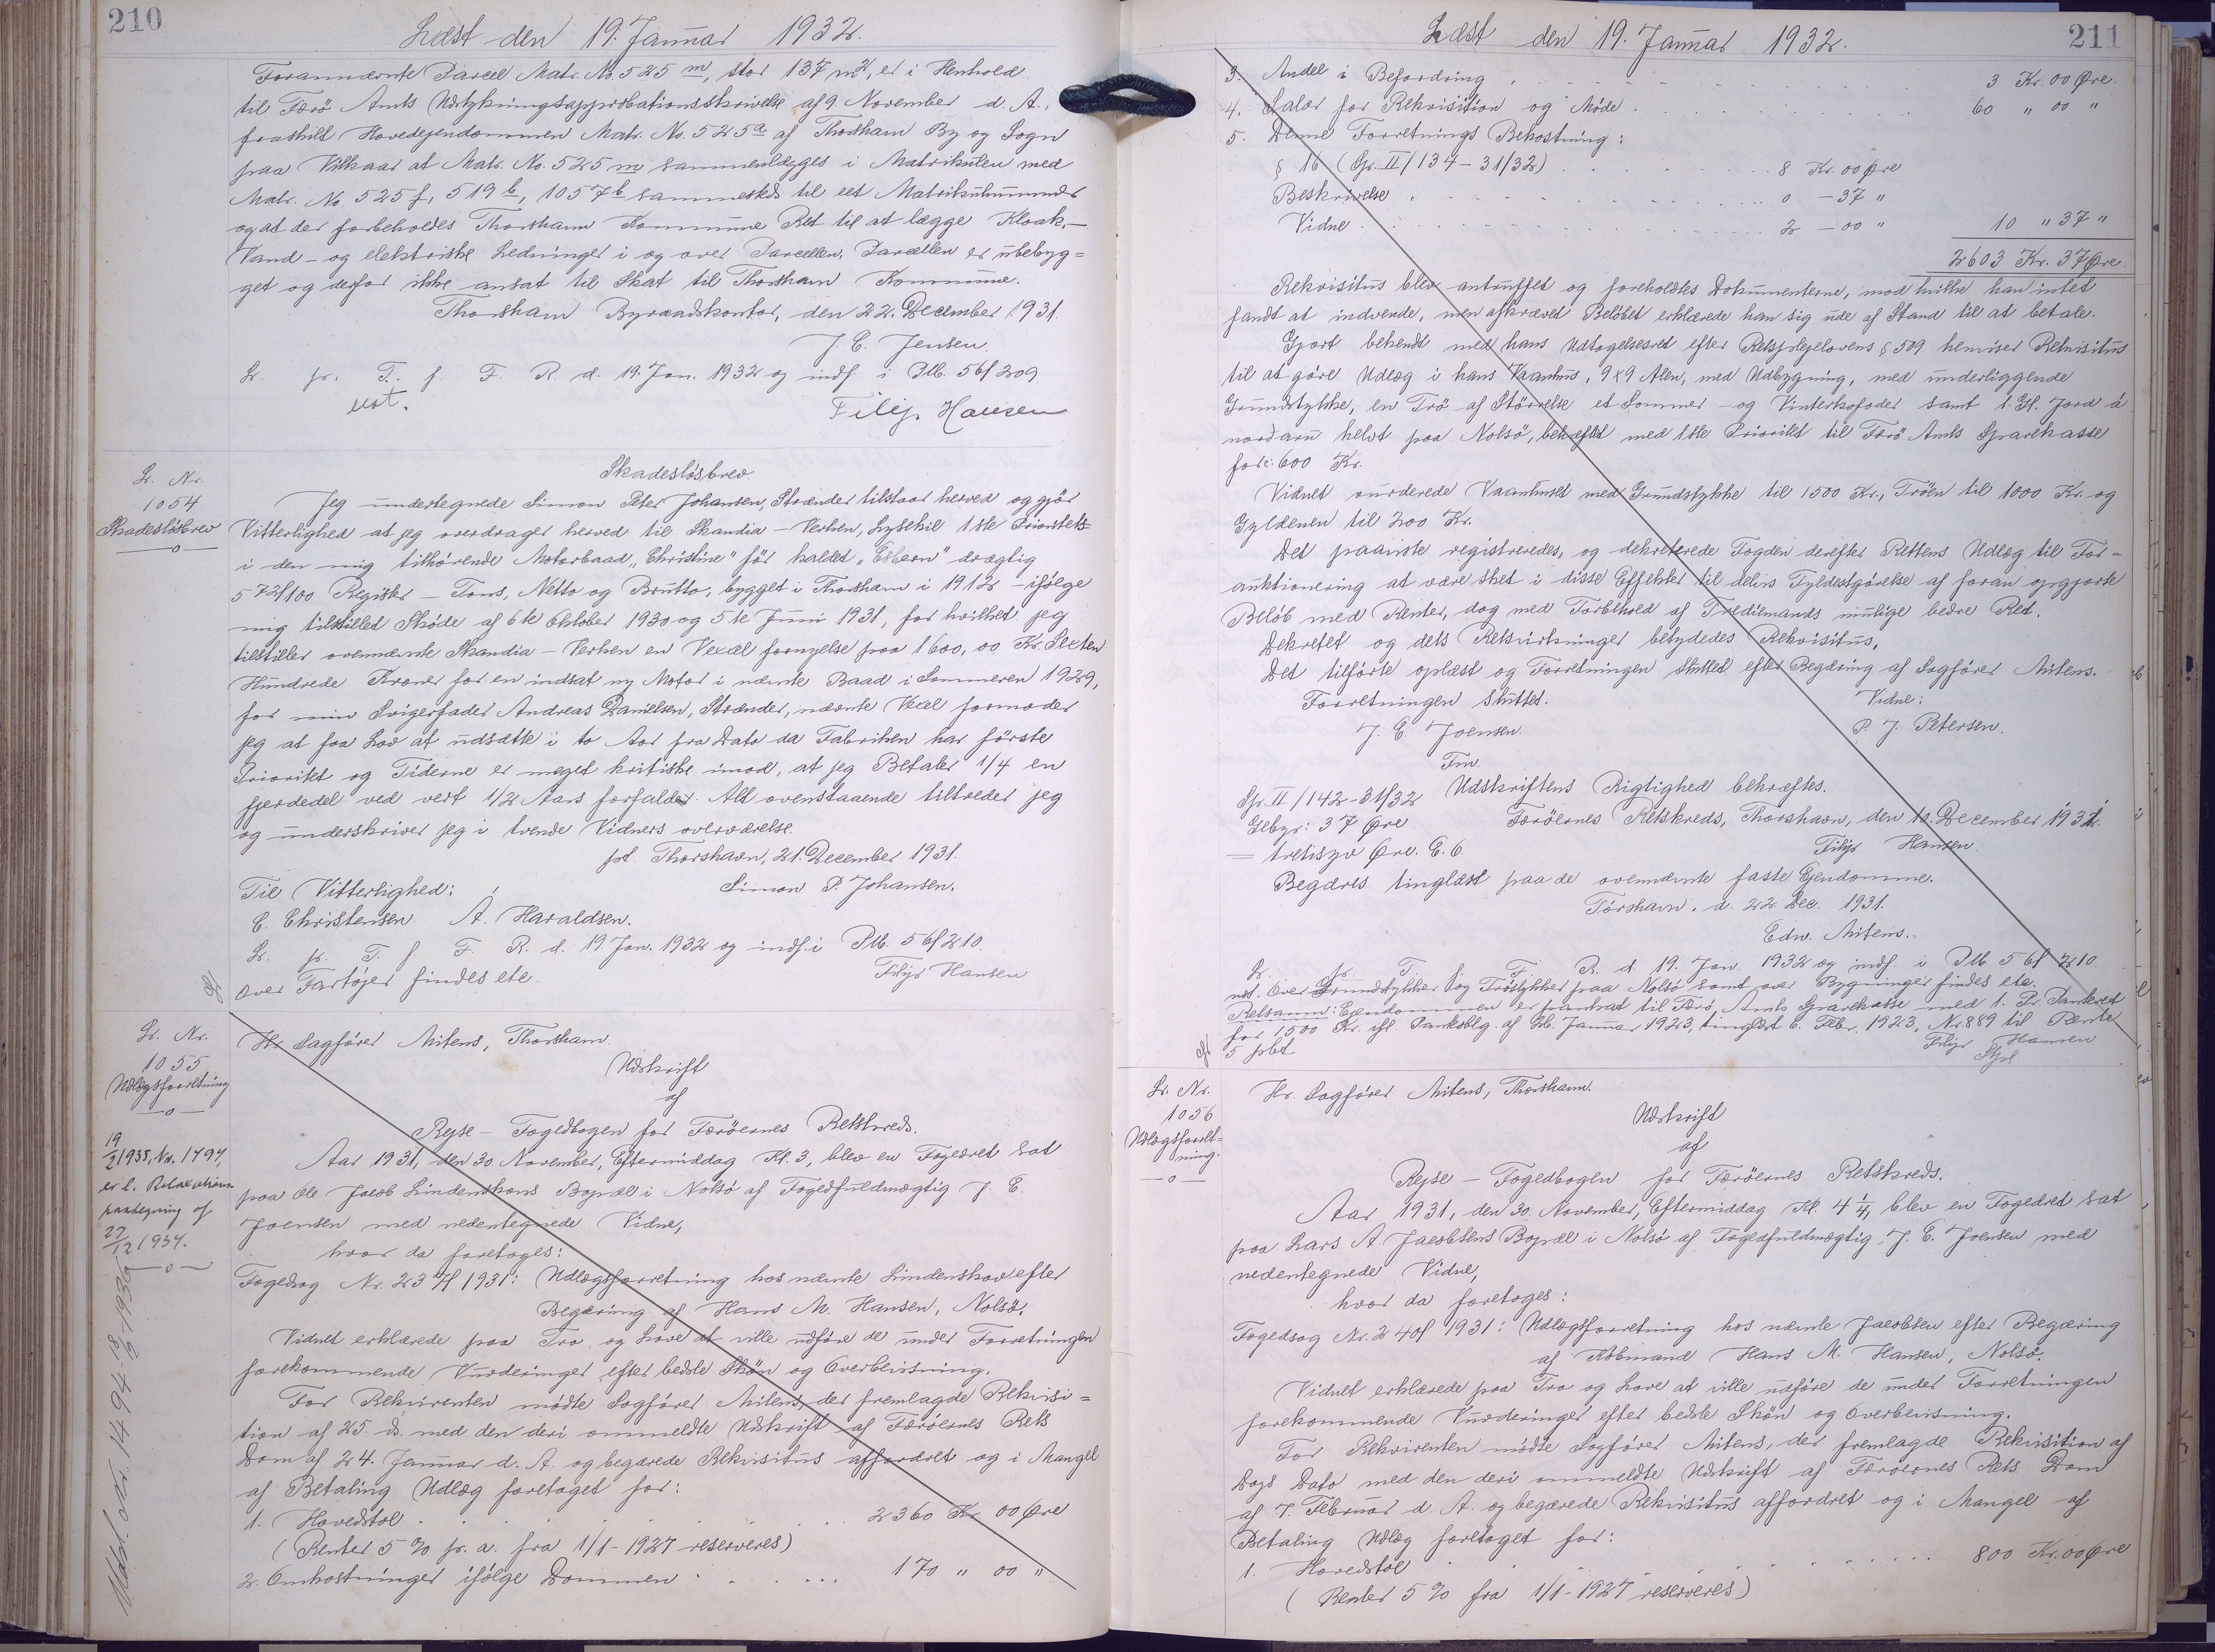 210
Læst den 19. Januar 1932.
Forannævnte Parcel Matr. No. 525 m, stor 137 m², er i Henhold
til Færö Amts Udstykningsapprobationsskrivelse af 9. November d. A.,
fraskilt Hovedejendommen Matr. No. 525a af Thorshavn By og Sogn
paa Vilkaar at Matr. No. 525 m sammenlægges i Matrikulen med
Matr. No. 525 f, 519 b, 1057 b sammesteds til eet Matrikulnummer
og at der forbeholdes Thorshavn Kommune Ret til at lægge Kloak-
Vand- og elektriske Ledninger i og over Parcellen. Parcellen er ubebyg=
get og derfor ikke ansat til Skat til Thorshavn Kommune.
Thorshavn Byraadskontor, den 22. December 1931.
J. C. Jensen.
L. pr. T. f. F. R. d. 19. Jan. 1932 og indf. i Plb. 5 bf 209.
Filip Hansen
L. Nr.
1054
Skadeslösbrev
Skadeslösbrev.
Jeg undertegnede Simon Peter Johansen, Strænder tilstaar herved og gjör
Vitterlighed at jeg overdrager herved til Skandia-Verken, Lysekil 1ste Prioritets=
i den mig tilhörende Motorbaad „Christine" för kaldet „Esbern" drægtig
5 72/100 Register-Tons, Netto og Brutto, bygget i Thorshavn i 1912 - ifölge
mig tilstillet Sköde af 6te Oktober 1930 og 5te Juni 1931, for hvilket jeg
tilstiller ovennævnte Skandia-Verken en Vexel fornyelse paa 1600,00 Kr. Sexten
Hundrede Kroner for en indsat ny Motor i nævnte Baad i Sommeren 1929,
for min Svigerfader Andreas Danielsen, Strænder, nævnte Vexel formoder
jeg at faa Lov at udsætte i to Aar fra Dato da Fabriken har förste
Prioritet og Tiderne er meget kritiske imod, at jeg Betaler 1/4 en
fjerdedel ved vert 1/2 Aars forfalder. Alt ovenstaaende tiltreder jeg
og underskriver jeg i tvende Vidners overværelse.
pt. Thorshavn, 21. December 1931.
Til Vitterlighed:
Simon P. Johansen.
C. Christensen. A. Haraldsen.
L. pr. T. f. F. R. d. 19. Jan. 1932 og indf. i Plb. 5 bf 210.
Over Fartöjer findes ete.
Filip Hansen
L. Nr.
1055
Udlægsforretning
19/2 1935, Nr. 1494,
er l. Relaxations
paategning af
27/12 1934.
Udsl. Nr. 1494 18/2-1935
Hr. Sagförer Mitens, Thorshavn.
Udskrift
af
Rejse-Fogedbogen for Færöernes Retskreds.
Aar 1931, den 30. November, Eftermiddag Kl. 3, blev en Fogedret sat
paa Ole Jacob Lindenskovs Bopæl i Nolsö af Fogedfuldmægtig J. C.
Joensen med nedentegnede Vidne,
hvor da foretoges:
Fogedsag Nr. 237/1931: Udlægsforretning hos nævnte Lindenskov efter
Begæring af Hans M. Hansen, Nolsö.
Vidnet erklærede paa Tro og Love at ville udföre de under Forretningen
forekommende Vurderinger efter bedste Skön og Overbevisning.
For Rekvirenten mödte Sagförer Mitens, der fremlagde Rekvisi=
tion af 25. ds. med den deri ommeldte Udskrift af Færöernes Rets
Dom af 24. Januar d. A. og begærede Rekvisitus affordret og i Mangel
af Betaling Udlæg foretaget for:
1. Hovedstol 2360 Kr. 00 Øre
(Renter 5 % p. a. fra 1/1-1927 reserveres)
2. Omkostninger ifölge Dommen 170 " 00 "
211
Læst den 19. Januar 1932.
3. Andel i Befordring 3 Kr. 00 Øre.
4. Salær for Rekvisition og Möde 60 " 00 "
5. Denne Forretnings Bekostning:
§ 16 (Gp. II/134-31/32) 8 Kr. 00 Øre
Beskrivelse 0 - 37 "
Vidne 2 - 00 " 10 " 37 "
2603 Kr. 37 Øre.
Rekvisitus blev antruffet og foreholdtes Dokumenterne, mod hvilke han intet
fandt at indvende, men afkrævet Belöbet erklærede han sig ude af Stand til at betale.
Gjort bekendt med hans Udtagelsesret efter Retsplejelovens § 509 henviser Rekvisitus
til at göre Udlæg i hans Vaanhus, 9x9 Alen, med Udbygning, med underliggende
Grundstykke, en Trö af Störrelse et Sommer- og Vinterkofoder samt 1 Gl. Jord á
nordaru helvt paa Nolsö, behæftet med 1ste Prioritet til Færö Amts Sparekasse
for: 600 Kr.
Vidnet vurderede Vaanhuset med Grundstykke til 1500 Kr., Tröen til 1000 Kr. og
Gyldenen til 200 Kr.
Det paaviste registreredes, og dekreterede Fogden derefter Rettens Udlæg til For=
auktionering at være sket i disse Effekter til delvis Fyldestgörelse af foran opgjorte
Belöb med Renter, dog med Forbehold af Tredjemands mulige bedre Ret.
Dekretet og dets Retsvirkninger betydedes Rekvisitus.
Det tilförte oplæst og Forretningen sluttet efter Begæring af Sagförer Mitens.
Forretningen sluttet.
Vidne:
J. C. Joensen.
P. J. Petersen.
Fm.
Gp. II/142-31/32
Udskriftens Rigtighed bekræftes.
Gebyr: 37 Øre
Færöernes Retskreds, Thorshavn, den 10. December 1931.
- tretisyv Øre. E. 6.
Filip Hansen.
Begæres tinglæst paa de ovennævnte faste Ejendomme.
Tórshavn, d. 22 Dec. 1931.
Edw. Mitens.
L. pr. T. f. F. R. d. 19. Jan. 1932 og indf. i Plb. 5 bf 210.
ust. Over Grundstykker og Tröstykker paa Nolsö samt over Bygninger findes ete.
Retsanm: Ejendommen er pantsat til Færö Amts Sparekasse med 1. Pr. Panteret
for 1500 Kr. ifl. Pantoblg. af 26. Januar 1923, tinglæst 6. Febr. 1923, Nr. 889 til Rente
5 pCt
Filip Hansen
L. Nr.
1056
Udlægsforret=
ning.
Hr. Sagförer Mitens, Thorshavn.
Udskrift
af
Rejse-Fogedbogen for Færöernes Retskreds.
Aar 1931, den 30. November, Eftermiddag Kl. 4 1/4, blev en Fogedret sat
paa Lars A. Jacobsens Bopæl i Nolsö af Fogedfuldmægtig J. C. Joensen med
nedentegnede Vidne,
hvor da foretoges:
Fogedsag Nr. 240f 1931: Udlægsforretning hos nævnte Jacobsen efter Begæring
af Köbmand Hans M. Hansen, Nolsö.
Vidnet erklærede paa Tro og Love at ville udföre de under Forretningen
forekommende Vurderinger efter bedste Skön og Overbevisning.
For Rekvirenten mödte Sagförer Mitens, der fremlagde Rekvisition af
Dags Dato med den deri ommeldte Udskrift af Færöernes Rets Dom
af 7. Februar d. A. og begærede Rekvisitus affordret og i Mangel af
Betaling Udlæg foretaget for:
1. Hovedstol 800 Kr. 00 Øre
(Renter 5 % fra 1/1-1927 reserveres)